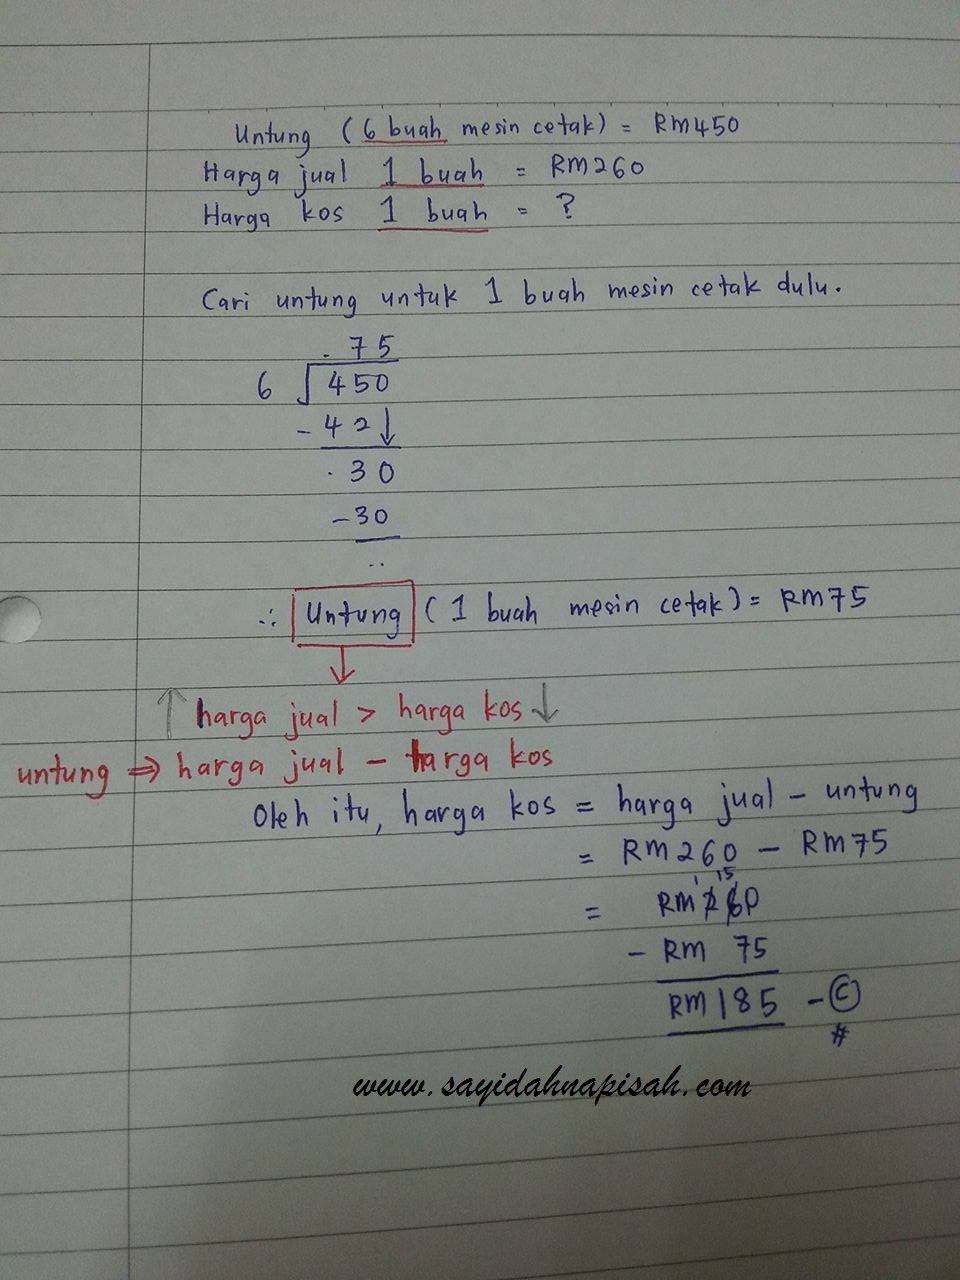 Untung (6 buah mesin cetak) = RM450
Harga jual 1 buah = RM260
Harga kos 1 buah = ?
Cari untung untuk 1 buah mesin cetak dulu.
. 75
6 √450
- 42↓
. 30
-30
..
∴ Untung (1 buah mesin cetak) = RM75
↓
↑ harga jual > harga kos ↓
untung ⇒ harga jual - harga kos
Oleh itu, harga kos = harga jual - untung
= RM260 - RM75
1 15
= RM260
- RM 75
RM185 - ©
#
www.sayidahnapisah.com